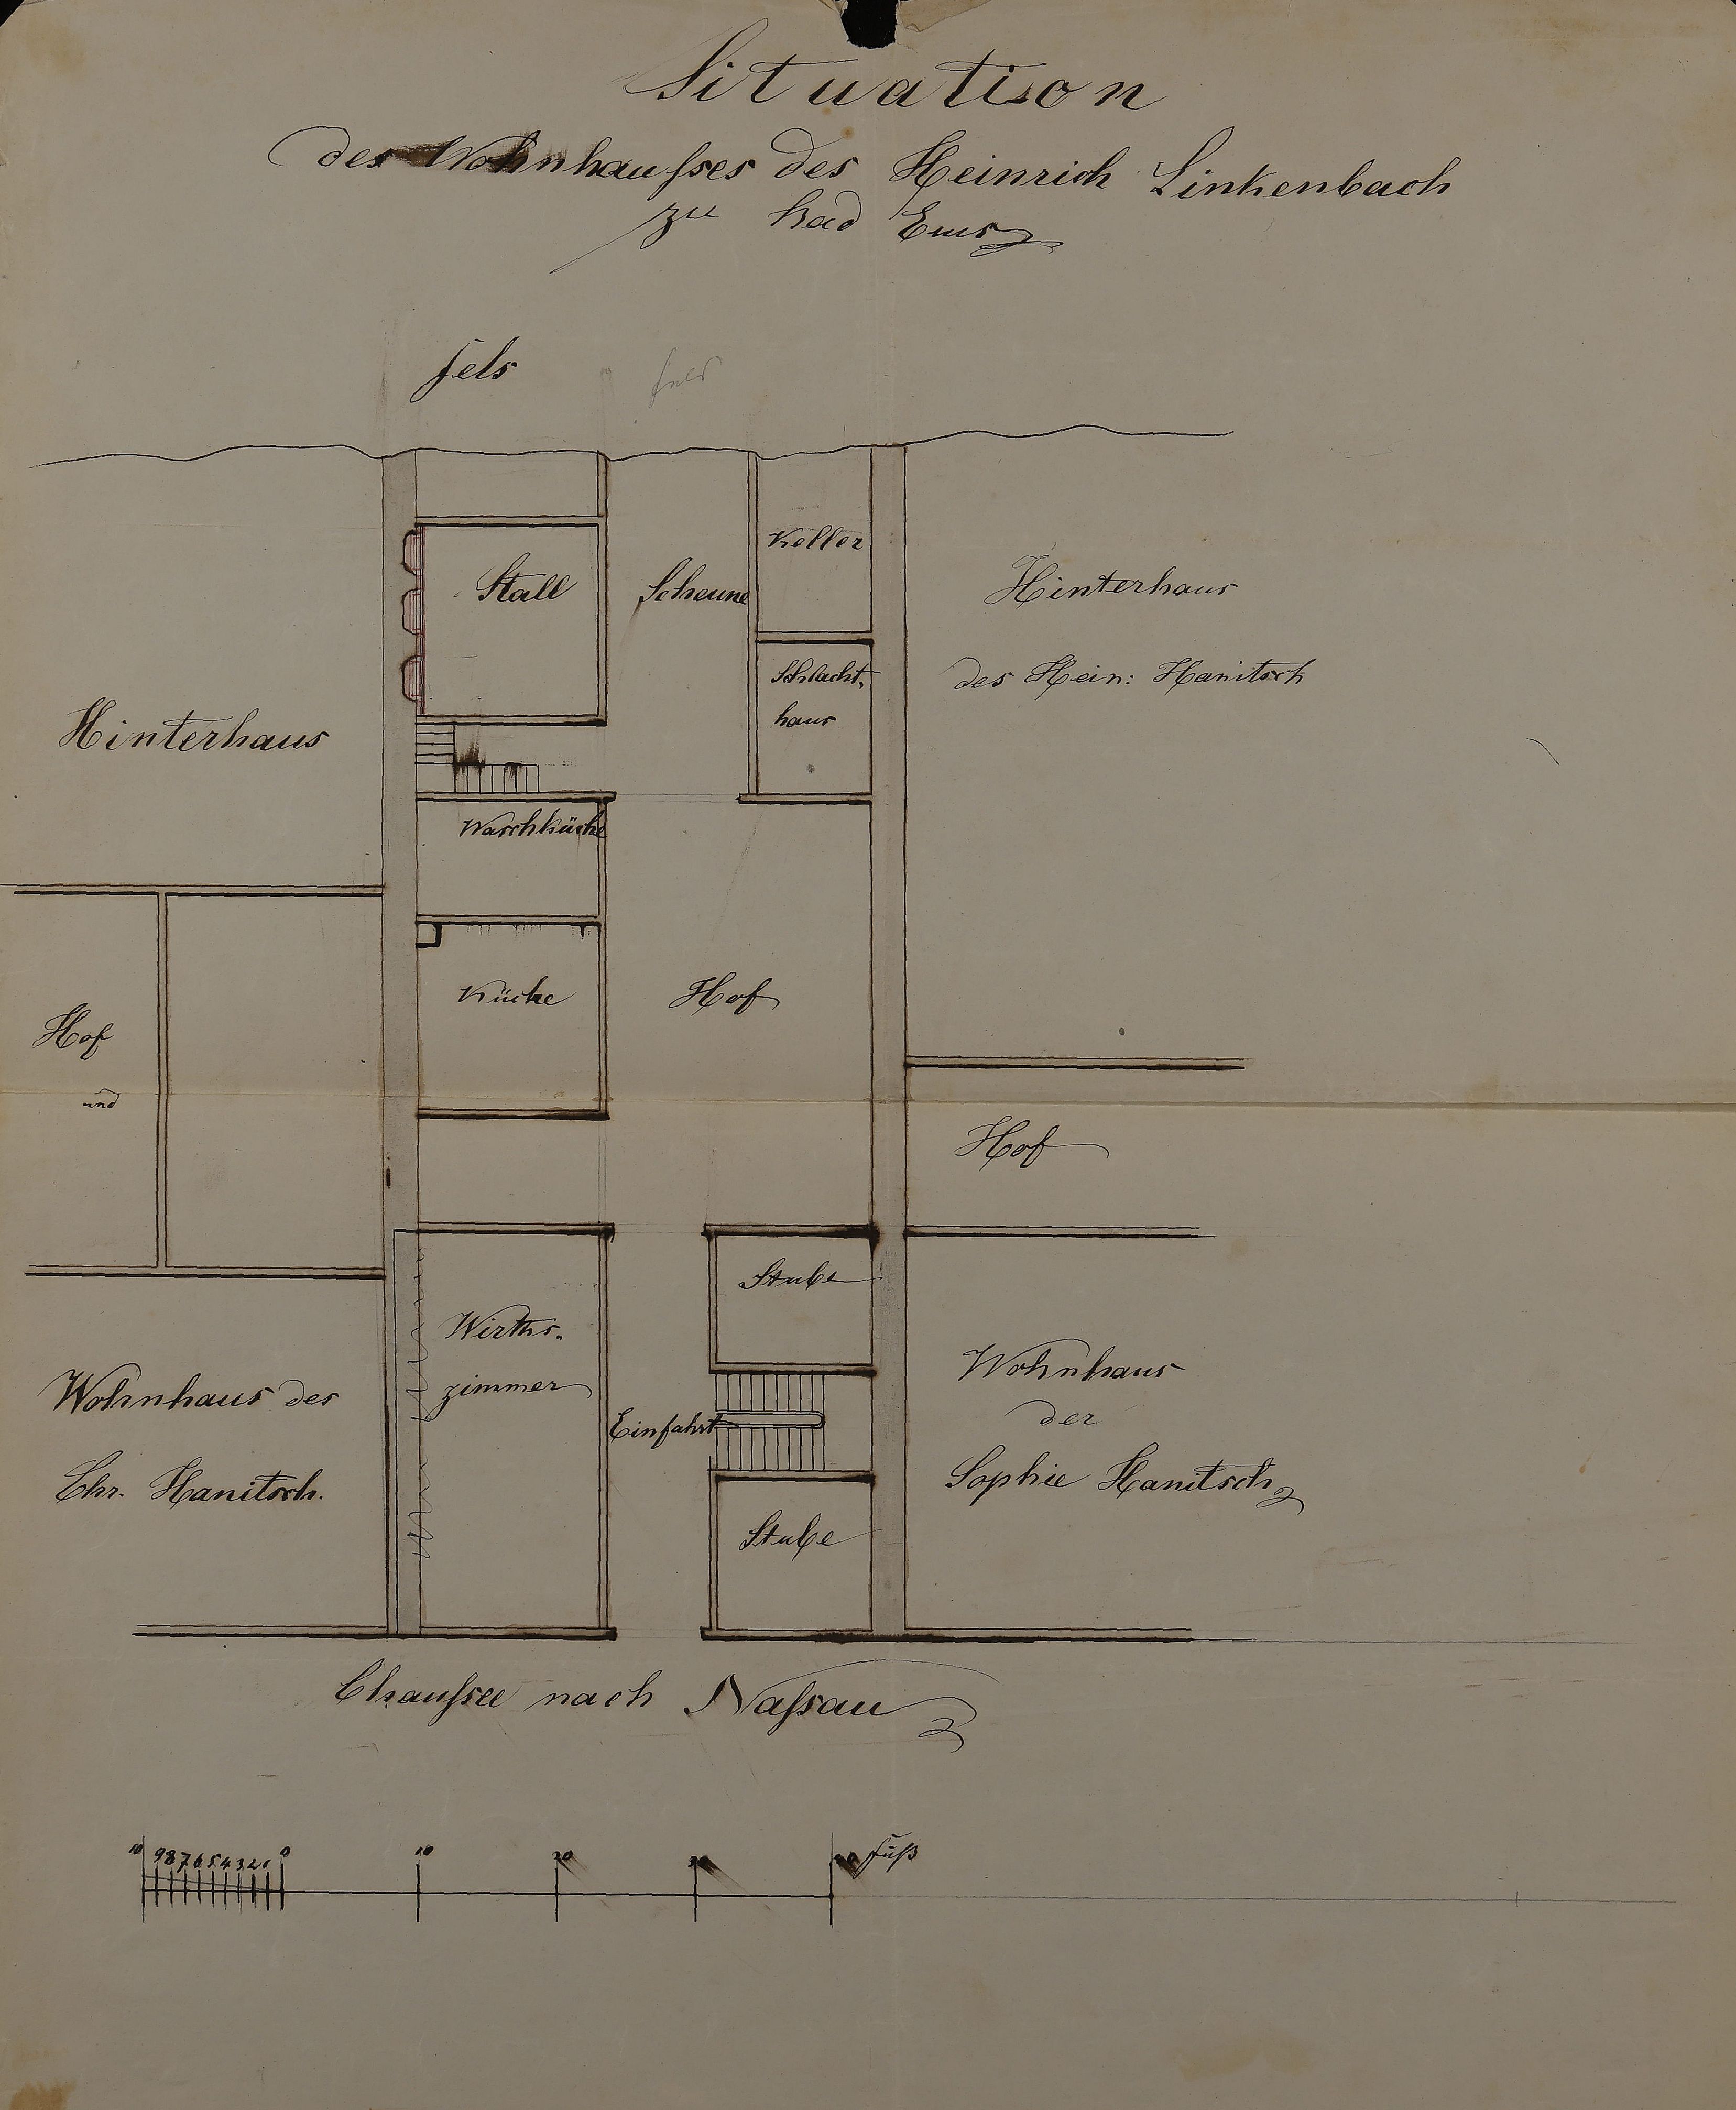 Situation
des Wohnhausses des Heinrich Linkenbach
zu Bad Ems
Fels
Fels
Keller
Stall
Scheune
Hinterhaus
des Hein: Hanitsch
Schlacht-
haus
Hinterhaus
Waschküche
Küche
Hof
Hof
und
Hof
Stube
Wirths-
zimmer
Einfahrt
Wohnhaus des
Chr. Hanitsch.
Wohnhaus
der
Sophie Hanitsch
Stube
Chaussee nach Nassau
10 9 8 7 6 5 4 3 2 1 0 10 20 30 40 Fuß